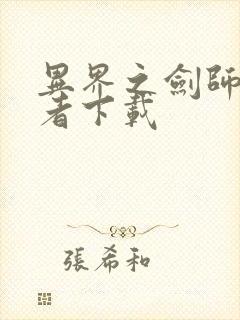 異界之劍師
者下載
張希和